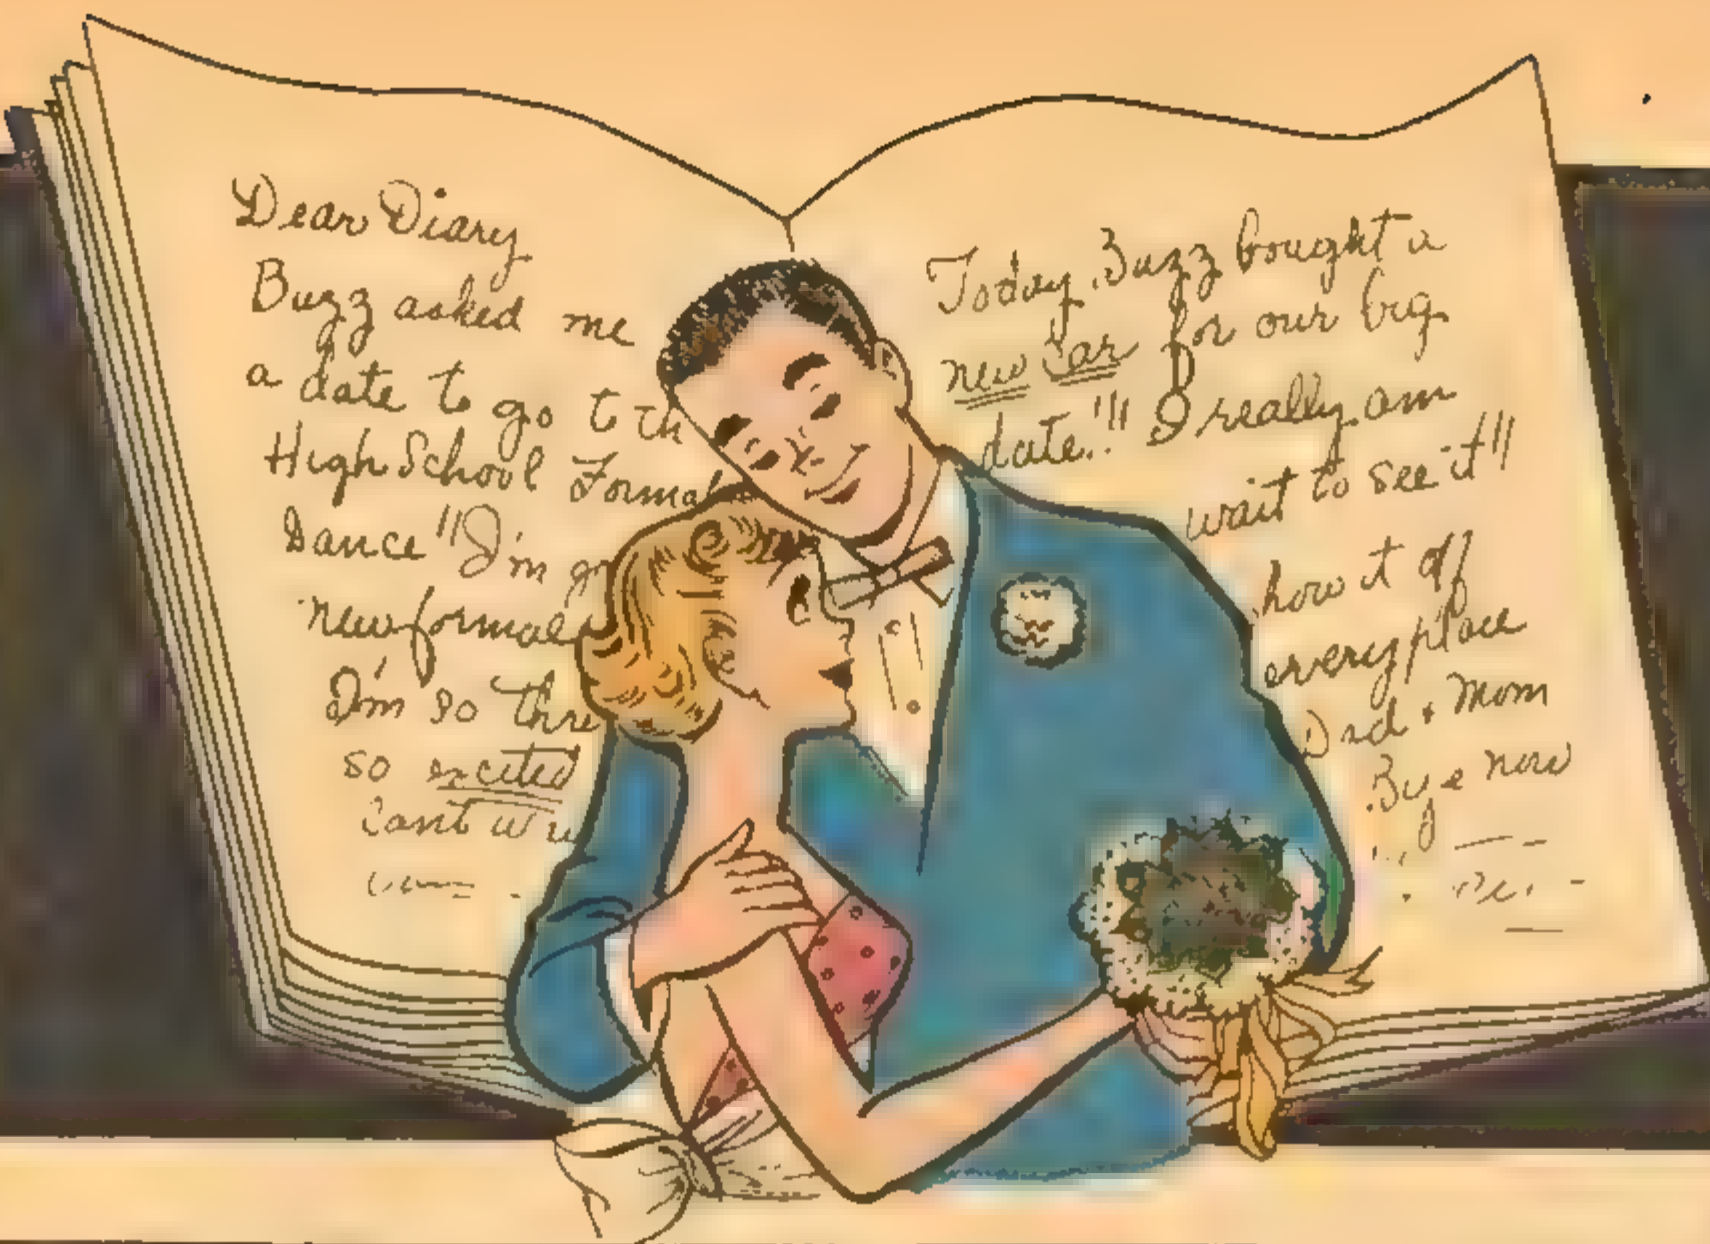 Dear Diary
Buzz asked me
a date to go to th
High School Formal
Dance "I'm g
new formal
I'm so thre
so excited
Cant w
Today Buzz bought a
new car for our big
date!!" I really am
wait to see it"
how it off
every place
Dad + Mom
Bye now